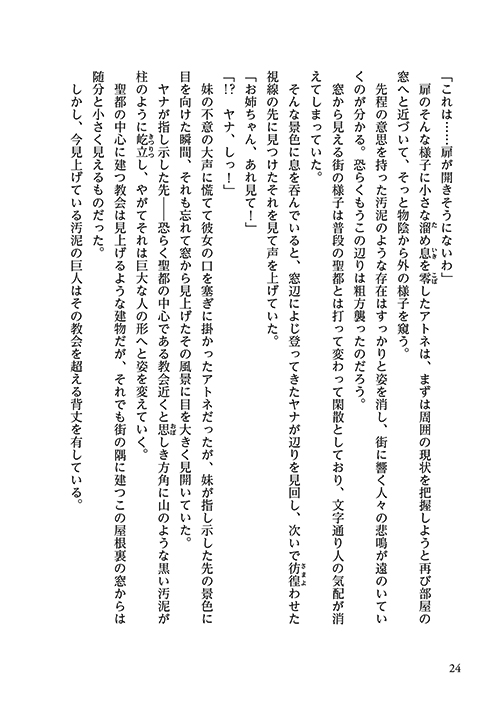 「これは……扉が開きそうにないわ」
　扉のそんな様子に小さな溜め息を零したアトネは、まずは周囲の現状を把握しようと再び部屋の
窓へと近づいて、そっと物陰から外の様子を窺う。
　先程の意思を持った汚泥のような存在はすっかりと姿を消し、街に響く人々の悲鳴が遠のいてい
くのが分かる。恐らくもうこの辺りは粗方襲ったのだろう。
　窓から見える街の様子は普段の聖都とは打って変わって閑散としており、文字通り人の気配が消
えてしまっていた。
　そんな景色に息を呑んでいると、窓辺によじ登ってきたヤナが辺りを見回し、次いで彷徨わせた
視線の先に見つけたそれを見て声を上げていた。
「お姉ちゃん、あれ見て！」
「!?　ヤナ、しっ！」
　妹の不意の大声に慌てて彼女の口を塞ぎに掛かったアトネだったが、妹が指し示した先の景色に
目を向けた瞬間、それも忘れて窓から見上げたその風景に目を大きく見開いていた。
　ヤナが指し示した先――恐らく聖都の中心である教会近くと思しき方角に山のような黒い汚泥が
柱のように屹立し、やがてそれは巨大な人の形へと姿を変えていく。
　聖都の中心に建つ教会は見上げるような建物だが、それでも街の隅に建つこの屋根裏の窓からは
随分と小さく見えるものだった。
　しかし、今見上げている汚泥の巨人はその教会を超える背丈を有している。
24